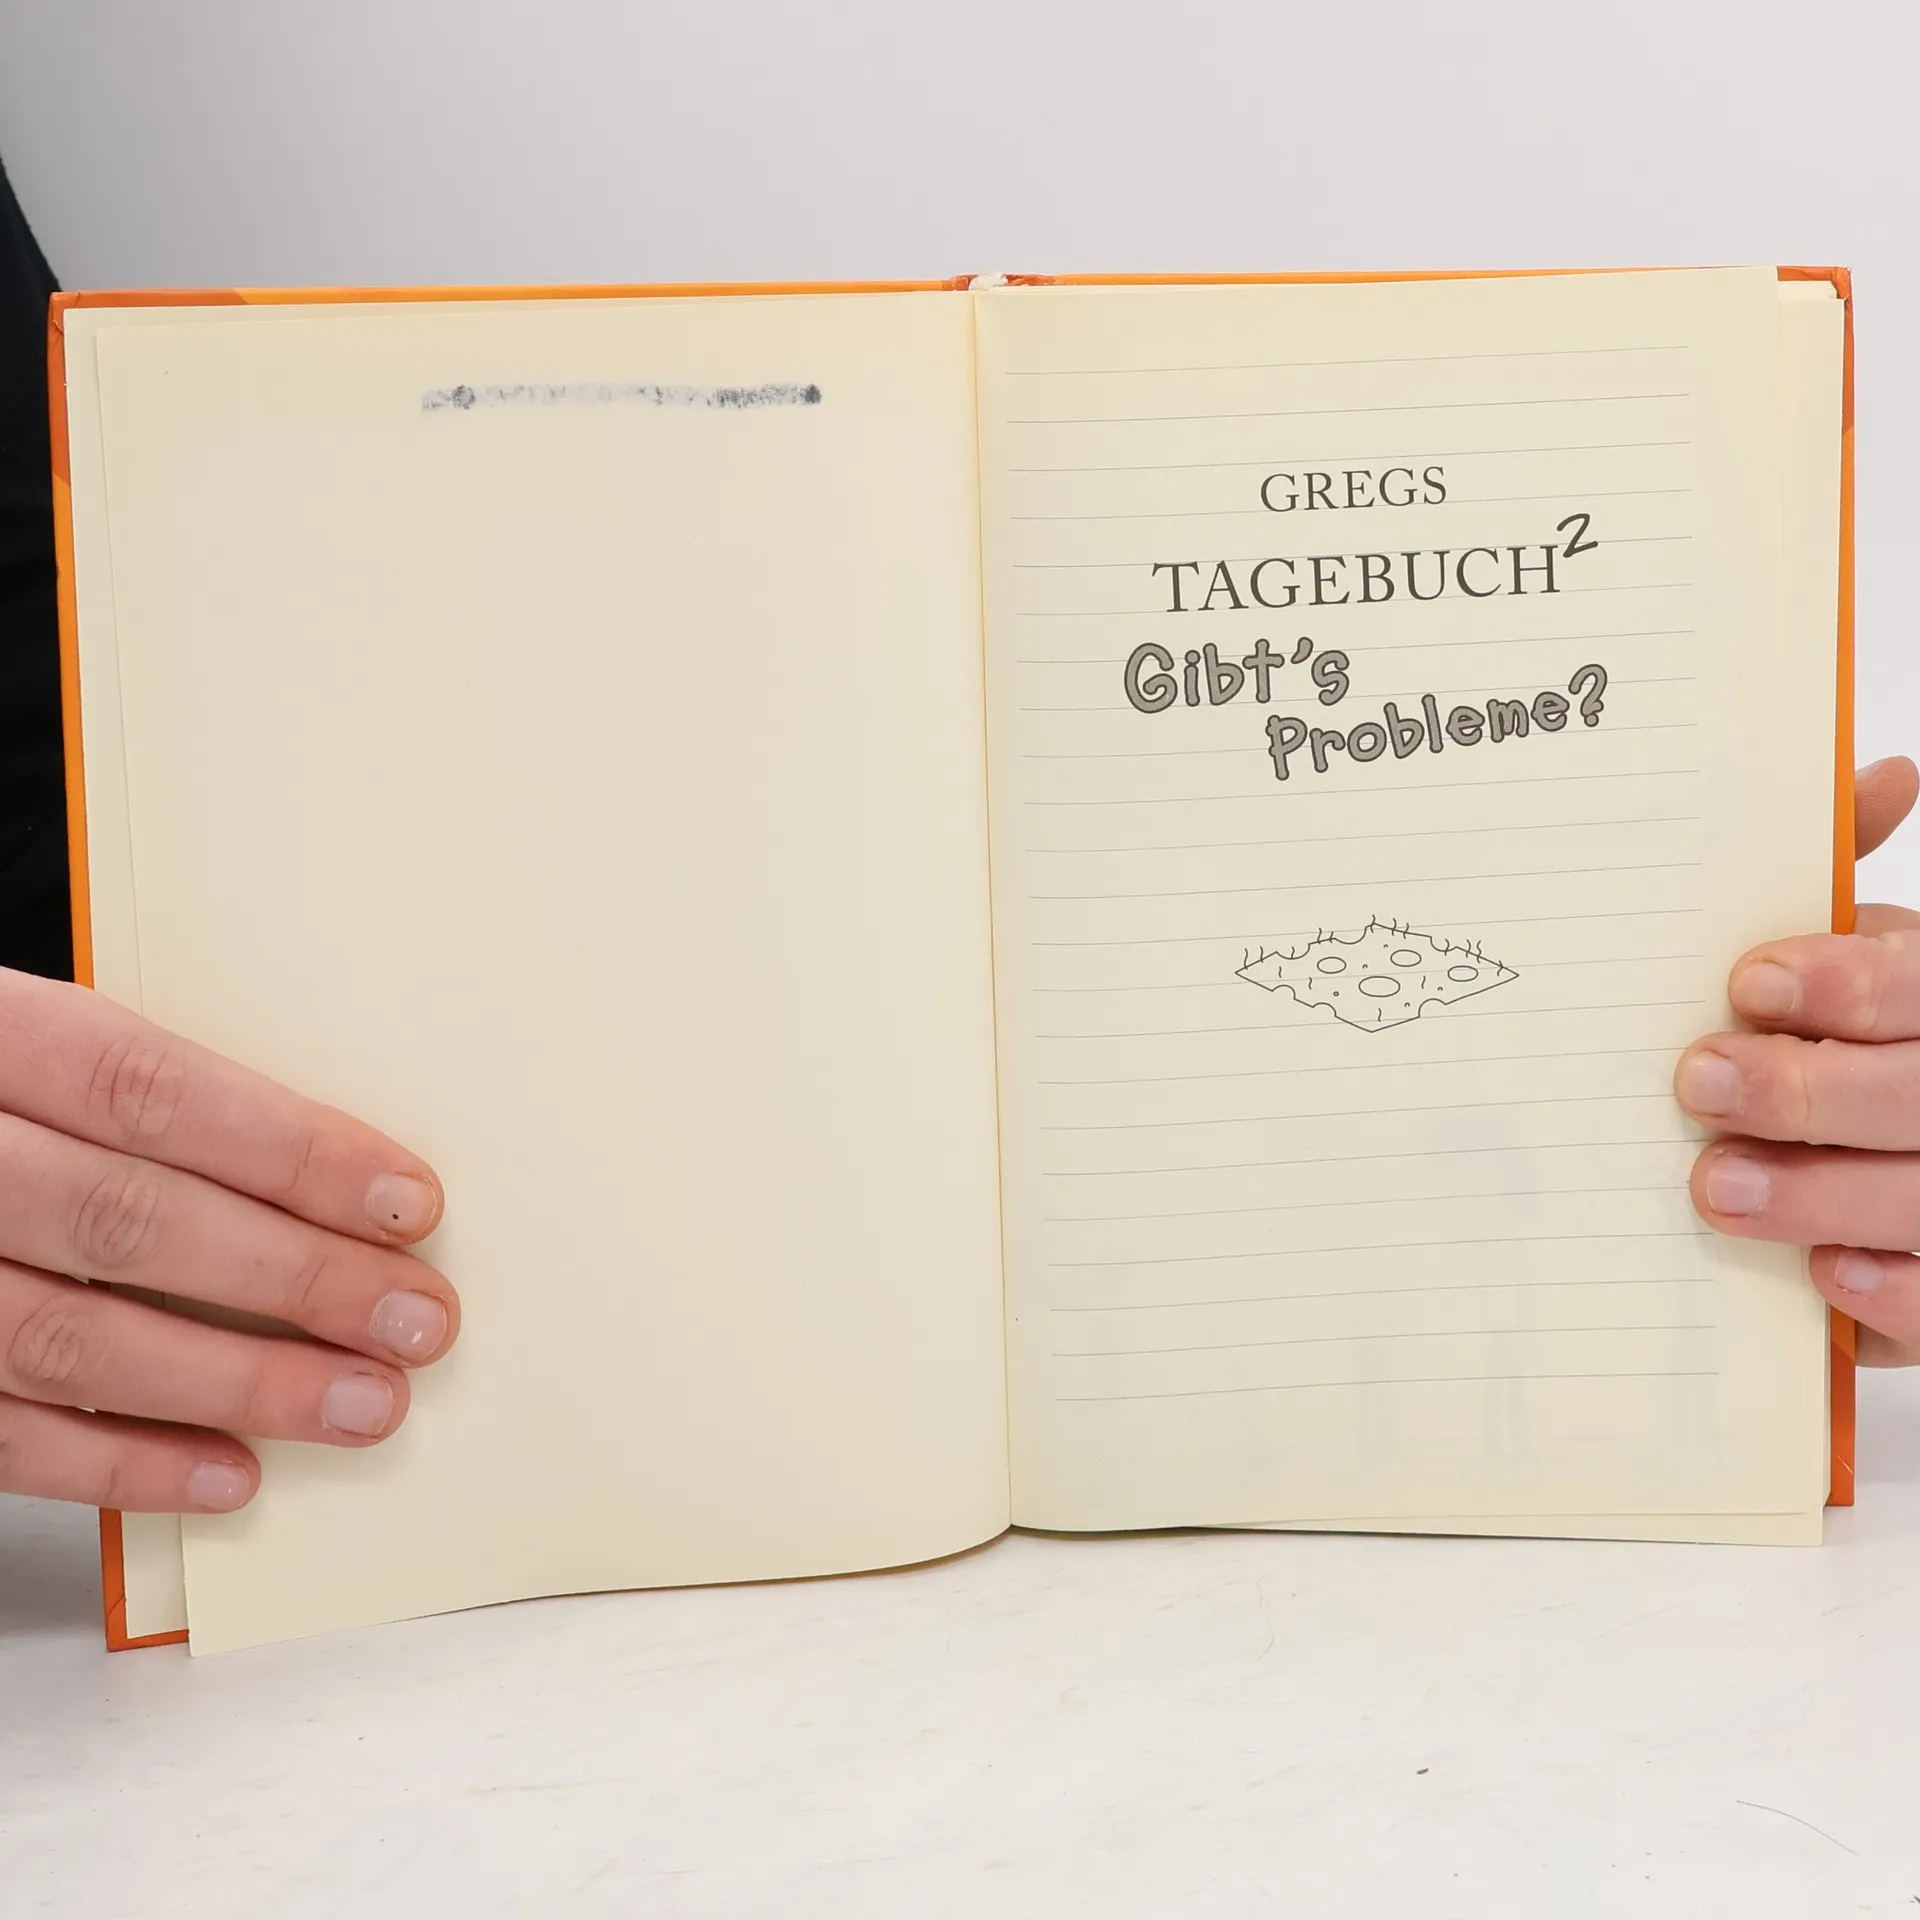 GREGS
TAGEBUCH²
Gibt's
Probleme?